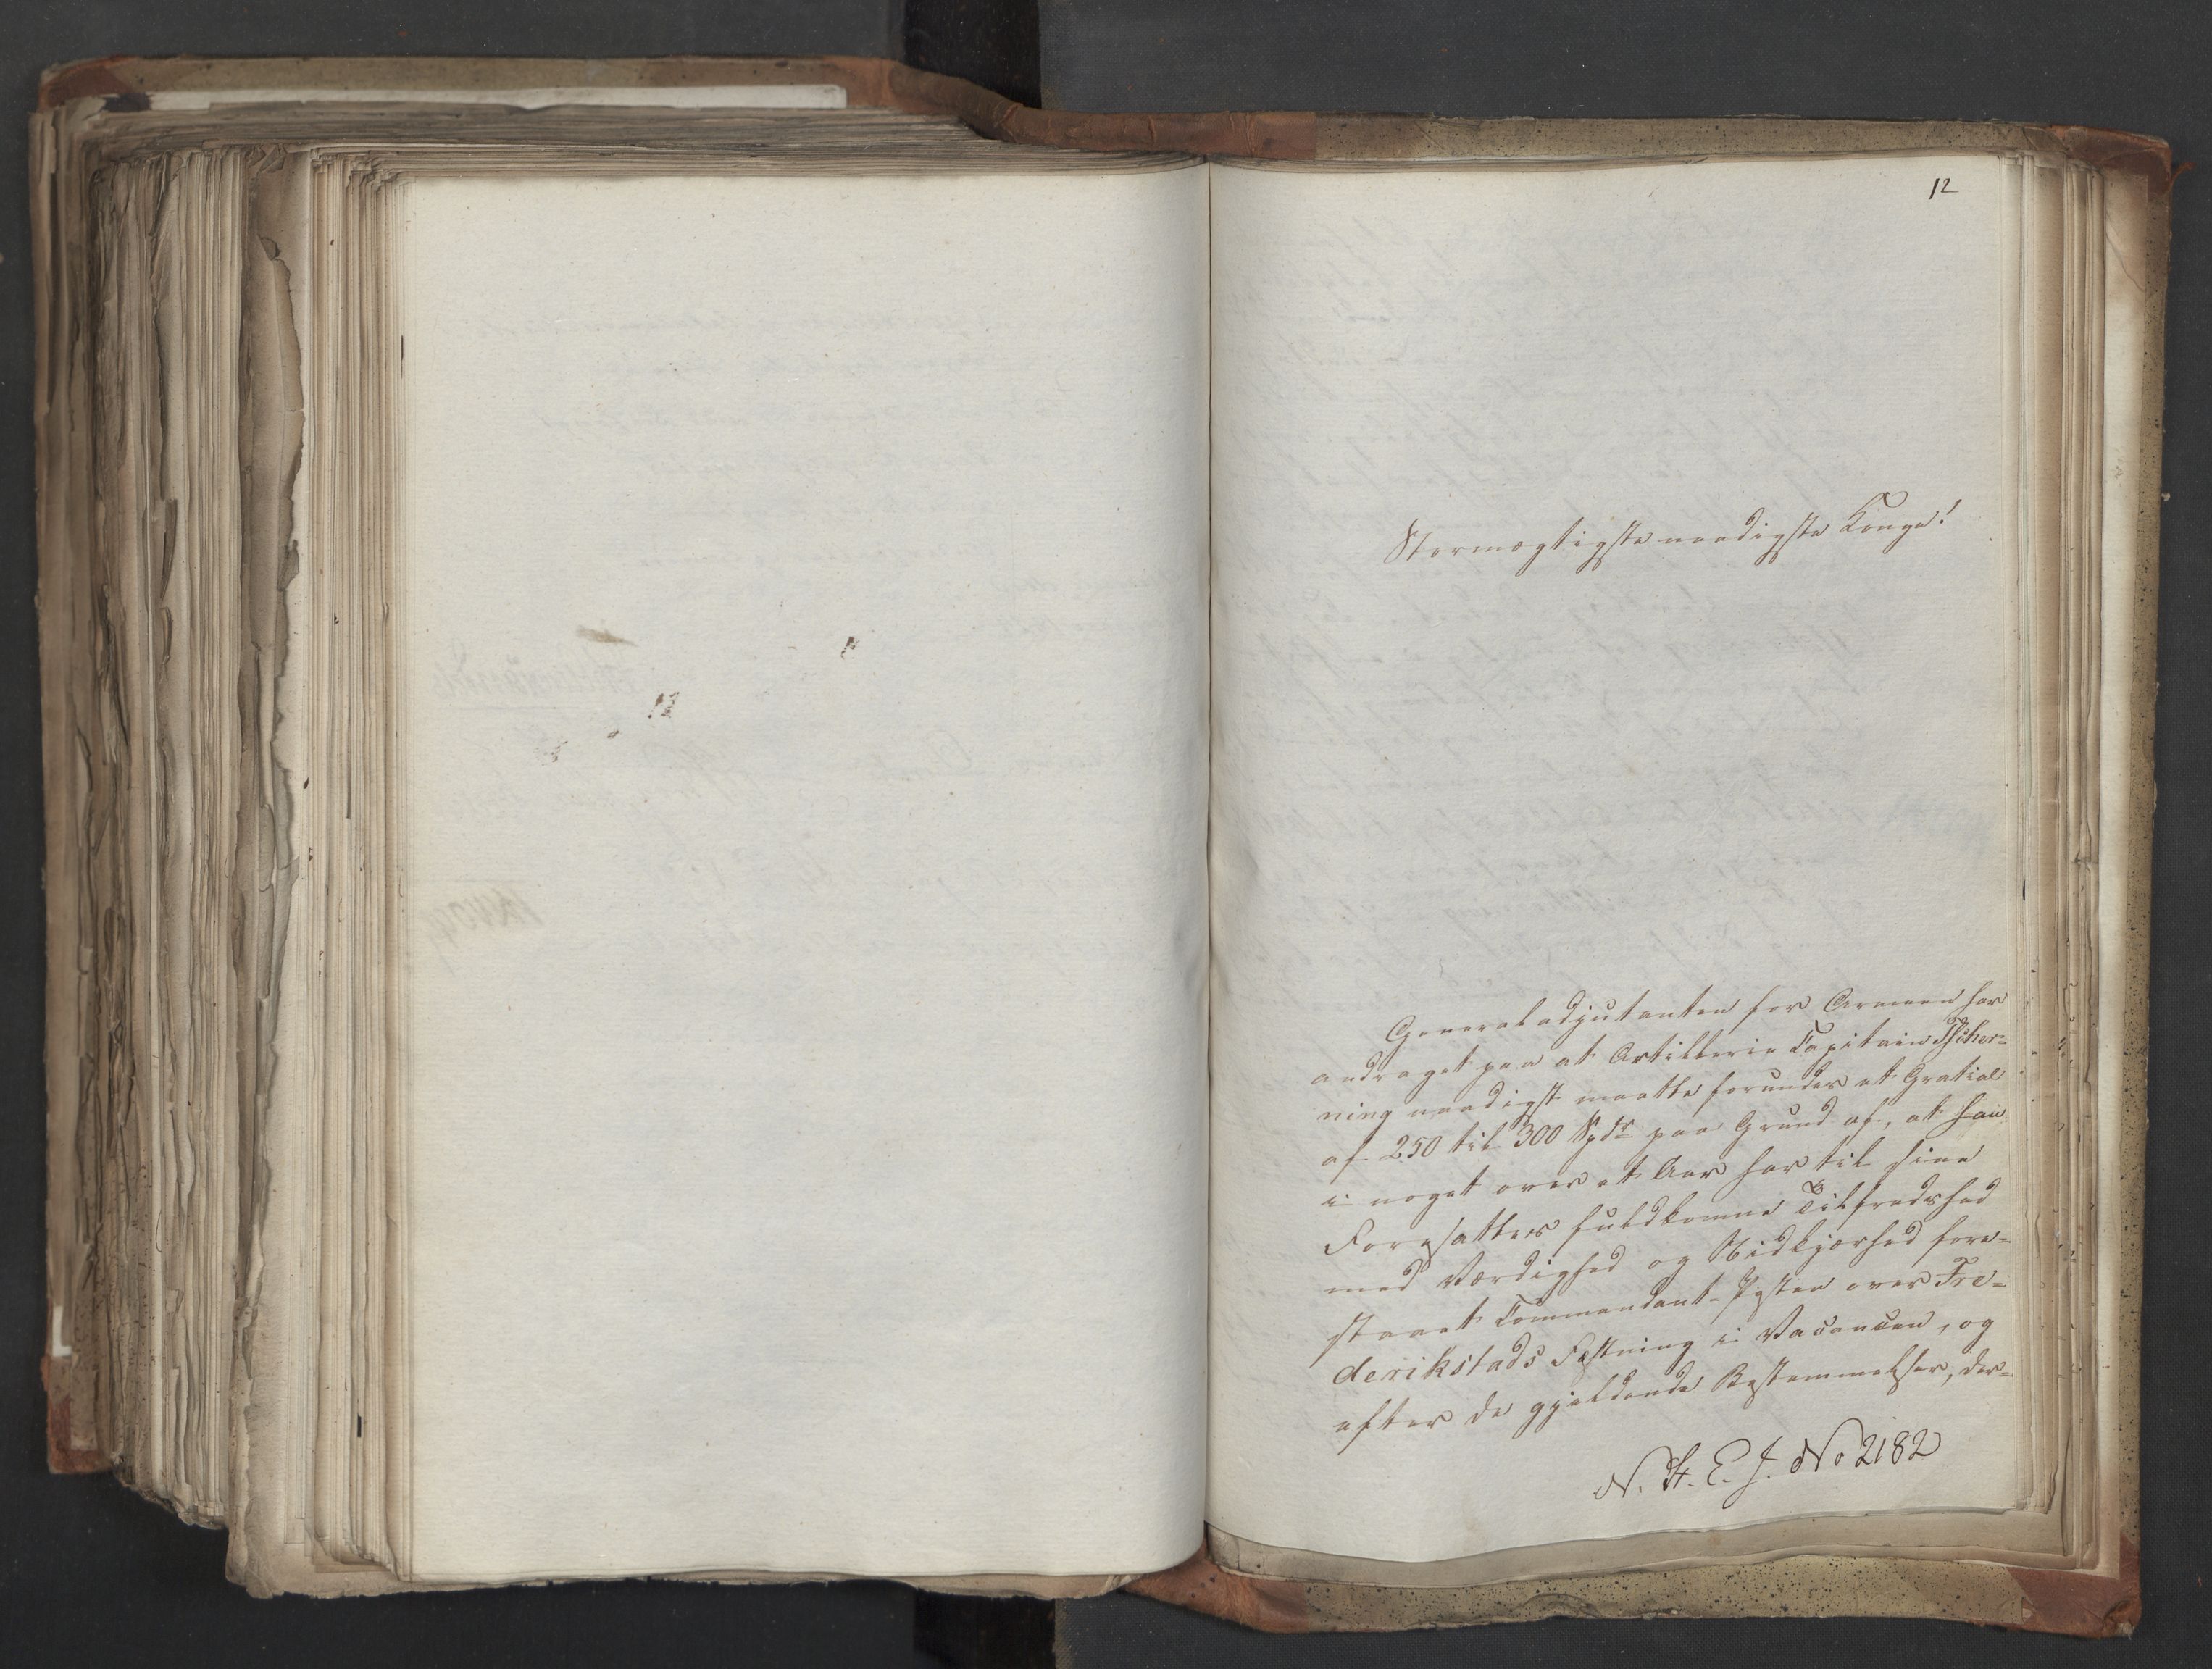 12
Stormægtigste naadigste Konge!
Generaladjutanten for Armeen har
andraget paa at Artillerie Capitain Tscher=
ning naadigst maatte forundes et Gratiale
af 250 til 300 Spdr paa Grund af, at han
i noget over et Aar har til sine
Foresattes fuldkomne Tilfredshed
med Værdighed og Nidkjærhed fore=
staaet Commandant-Posten over Fre=
derikstads Fæstning i Vacancen, og
efter de gjeldende Bestemmelser, der=
N. H. E. J. No 2182